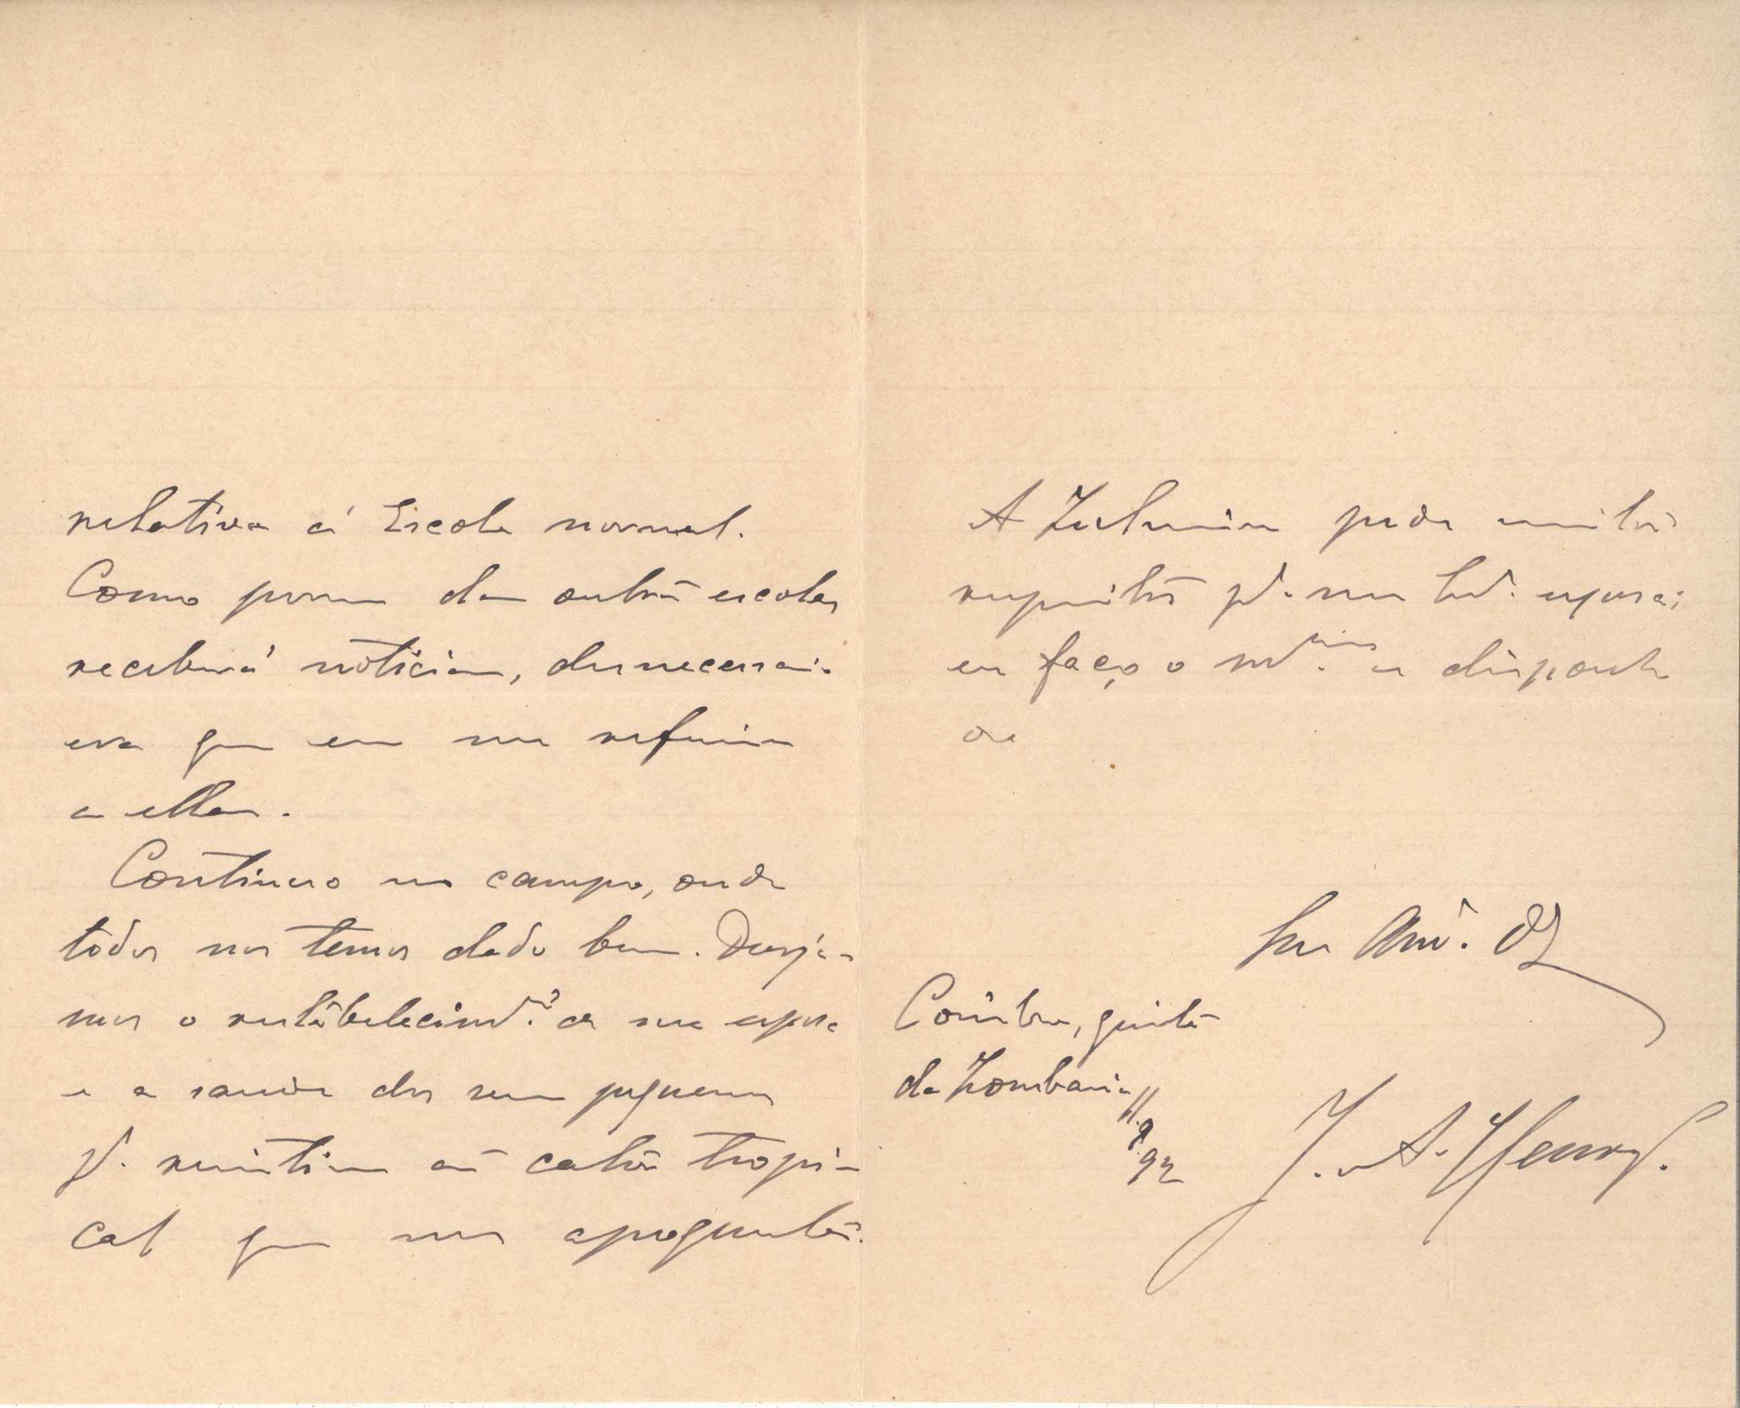 relativa á Escola normal.
Como porem das outras escolas
receberá noticias, desnecessari-
era que eu me referisse
a ellas.
Continuo no campo, onde
todos nos temos dado bem. Deseja-
mos o restabelecimto. da sua esposa
e a saude dos seus pequenos
pa. resistirem ao calor tropi-
cal que nos
A Zulmira pede muitos
respeitos pa. sua esposa;
eu faço o mesmo e disponha
de
Seu Amo.
Coimbra, quinta
da Zombaria
11.9.92
J. A. Henry.